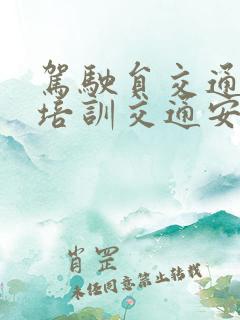 駕駛員交通
培訓交通安
肖罡
未经同意禁止转载